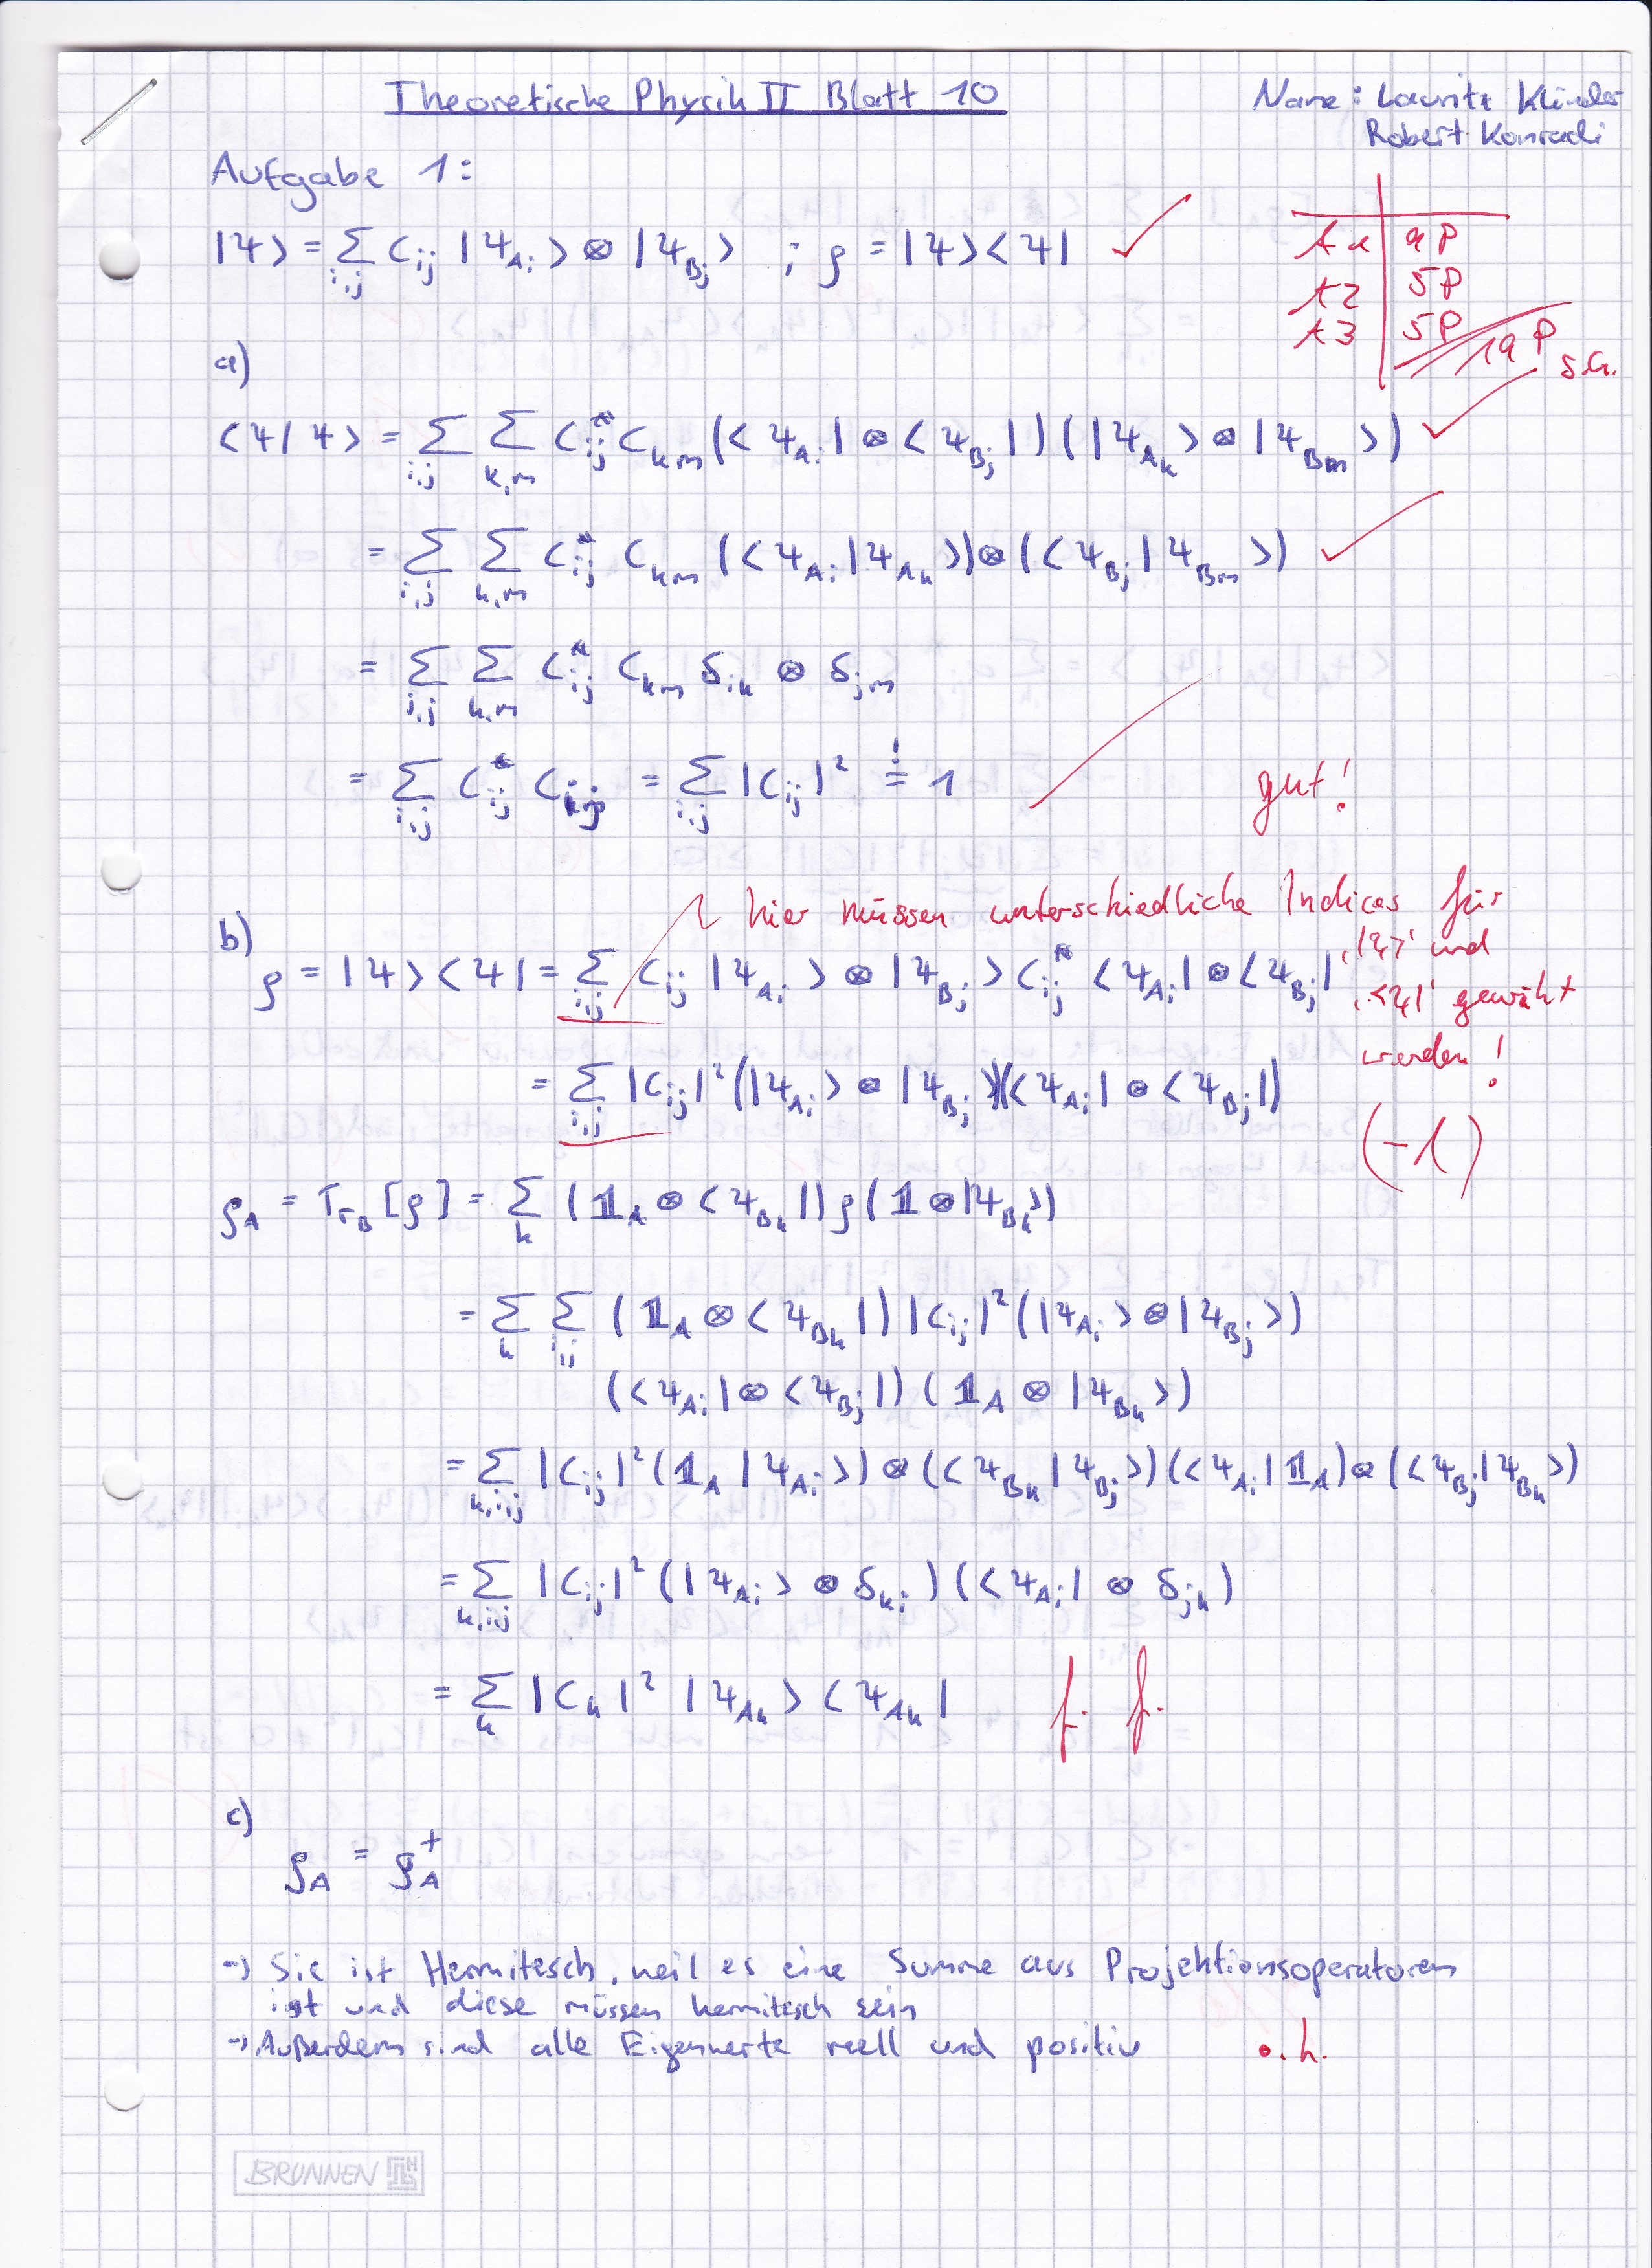 Theoretische Physik II Blatt 10
Name: Lauritz Klünder
Robert Konradi
Aufgabe 1:
|ψ> = Σ_{i,j} C_{ij} |ψ_{A_i}> ⊗ |ψ_{B_j}> ; ρ = |ψ><ψ| ✓
A1 | 9P
A2 | 5P
A3 | 5P
19P
s.G.
a)
<ψ|ψ> = Σ_{i,j} Σ_{k,m} C_{ij}^* C_{km} (<ψ_{A_i}| ⊗ <ψ_{B_j}|) (|ψ_{A_k}> ⊗ |ψ_{B_m}>) ✓
= Σ_{i,j} Σ_{k,m} C_{ij}^* C_{km} (<ψ_{A_i}|ψ_{A_k}>) ⊗ (<ψ_{B_j}|ψ_{B_m}>) ✓
= Σ_{i,j} Σ_{k,m} C_{ij}^* C_{km} δ_{ik} ⊗ δ_{jm}
= Σ_{i,j} C_{ij}^* C_{ij} = Σ_{i,j} |C_{ij}|² =! 1
gut!
hier müssen unterschiedliche Indices für
'|ψ>' und
'<ψ|' gewählt
werden!
(-1)
b)
ρ = |ψ><ψ| = Σ_{i,j} C_{ij} |ψ_{A_i}> ⊗ |ψ_{B_j}> C_{ij}^* <ψ_{A_i}| ⊗ <ψ_{B_j}|
= Σ_{i,j} |C_{ij}|² (|ψ_{A_i}> ⊗ |ψ_{B_j}>)(<ψ_{A_i}| ⊗ <ψ_{B_j}|)
ρ_A = Tr_B [ρ] = Σ_k (𝟙_A ⊗ <ψ_{B_k}|) ρ (𝟙 ⊗ |ψ_{B_k}>)
= Σ_k Σ_{i,j} (𝟙_A ⊗ <ψ_{B_k}|) |C_{ij}|² (|ψ_{A_i}> ⊗ |ψ_{B_j}>)
(<ψ_{A_i}| ⊗ <ψ_{B_j}|) (𝟙_A ⊗ |ψ_{B_k}>)
= Σ_{k,i,j} |C_{ij}|² (𝟙_A |ψ_{A_i}>) ⊗ (<ψ_{B_k}|ψ_{B_j}>) (<ψ_{A_i}| 𝟙_A) ⊗ (<ψ_{B_j}|ψ_{B_k}>)
= Σ_{k,i,j} |C_{ij}|² (|ψ_{A_i}> ⊗ δ_{kj}) (<ψ_{A_i}| ⊗ δ_{jk})
= Σ_k |C_k|² |ψ_{A_k}> <ψ_{A_k}| f. f.
c)
ρ_A = ρ_A^+
→ Sie ist Hermitesch, weil es eine Summe aus Projektionsoperatoren
ist und diese müssen hermitesch sein
→ Außerdem sind alle Eigenwerte reell und positiv
o.k.
BRUNNEN